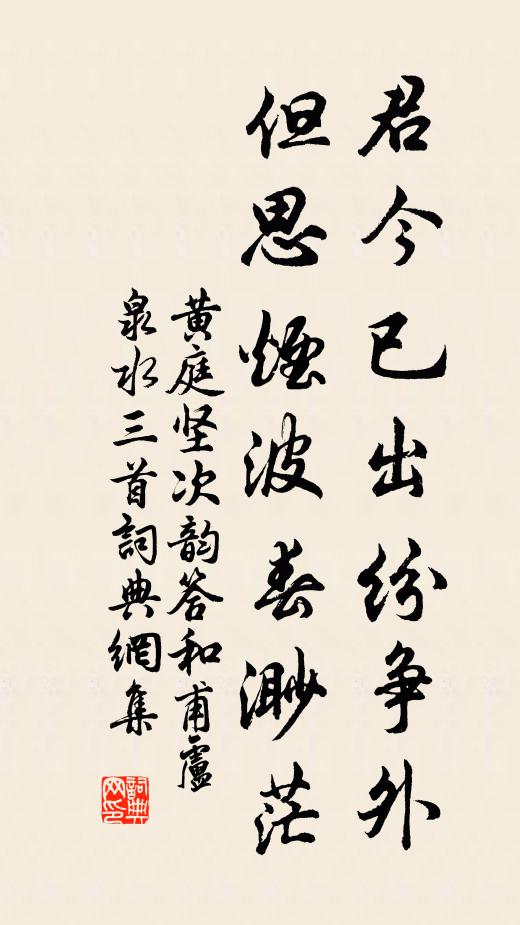 君今已出纷争外
但思煙波春渺茫
黄庭坚次韵答和甫盧
泉水三首詞典網集
詞典
网印